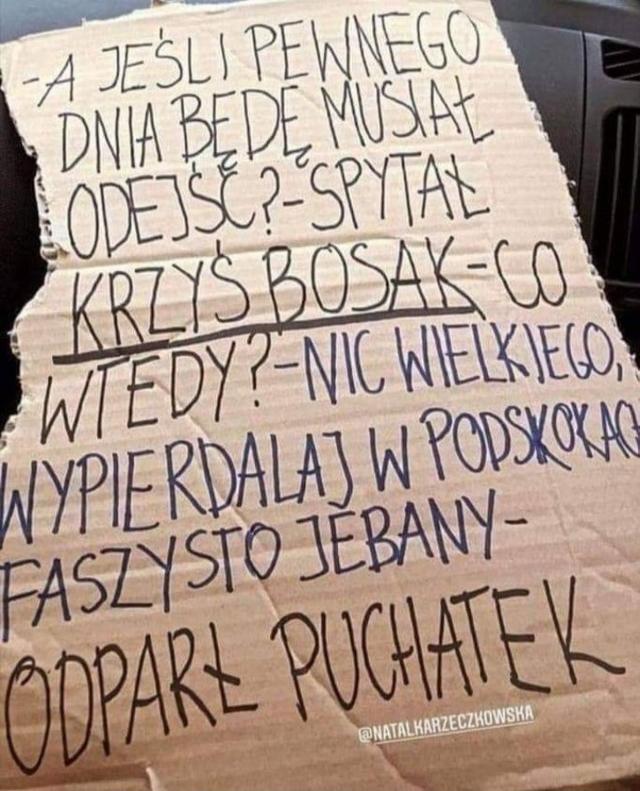 -A JEŚLI PEWNEGO
DNIA BĘDĘ MUSIAŁ
ODEJŚĆ?-SPYTAŁ
KRZYŚ BOSAK-CO
WTEDY?-NIC WIELKIEGO,
WYPIERDALAJ W PODSKOKACH
FASZYSTO JEBANY-
ODPARŁ PUCHATEK
@NATALKARZECZKOWSKA